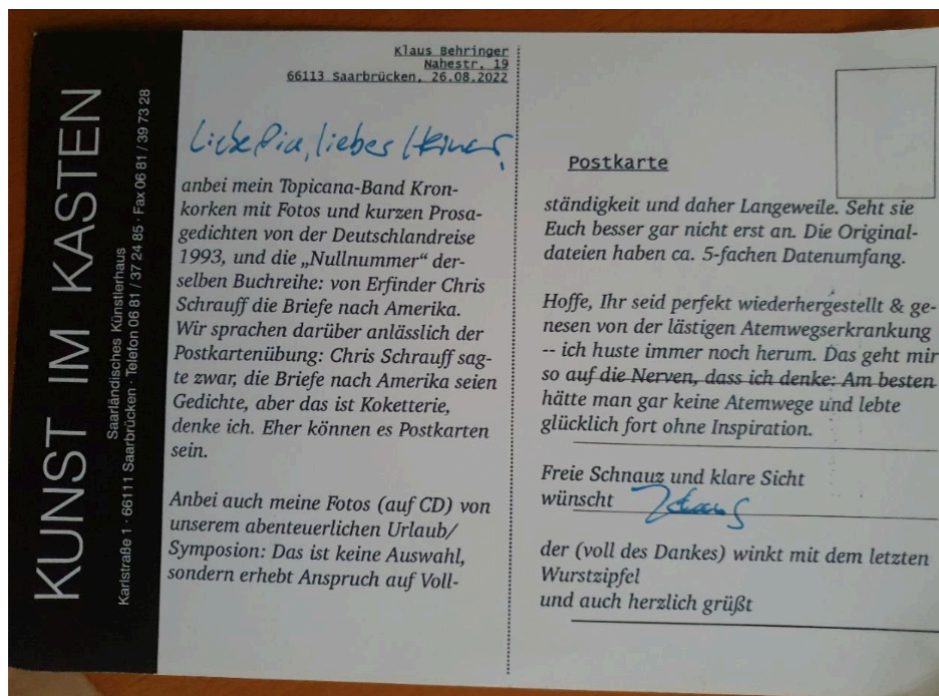 KUNST IM KASTEN
Saarländisches Künstlerhaus
Karlstraße 1 · 66111 Saarbrücken · Telefon 06 81 / 37 24 85 · Fax 06 81 / 39 73 28
Klaus Behringer
Nahestr. 19
66113 Saarbrücken, 26.08.2022
Liebe Pia, lieber Heiner,
anbei mein Topicana-Band Kron-
korken mit Fotos und kurzen Prosa-
gedichten von der Deutschlandreise
1993, und die „Nullnummer“ der-
selben Buchreihe: von Erfinder Chris
Schrauff die Briefe nach Amerika.
Wir sprachen darüber anlässlich der
Postkartenübung: Chris Schrauff sag-
te zwar, die Briefe nach Amerika seien
Gedichte, aber das ist Koketterie,
denke ich. Eher können es Postkarten
sein.
Anbei auch meine Fotos (auf CD) von
unserem abenteuerlichen Urlaub/
Symposion: Das ist keine Auswahl,
sondern erhebt Anspruch auf Voll-
Postkarte
ständigkeit und daher Langeweile. Seht sie
Euch besser gar nicht erst an. Die Original-
dateien haben ca. 5-fachen Datenumfang.
Hoffe, Ihr seid perfekt wiederhergestellt & ge-
nesen von der lästigen Atemwegserkrankung
-- ich huste immer noch herum. Das geht mir
so auf die Nerven, dass ich denke: Am besten
hätte man gar keine Atemwege und lebte
glücklich fort ohne Inspiration.
Freie Schnauz und klare Sicht
wünscht Klaus
der (voll des Dankes) winkt mit dem letzten
Wurstzipfel
und auch herzlich grüßt